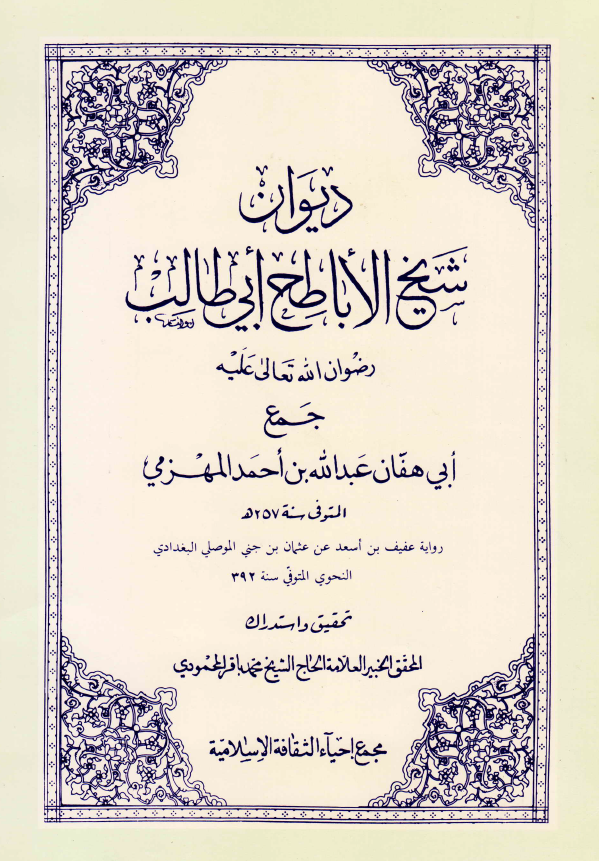 ديوَان
شَيخ الأباطِح أبي طالِب
رضوان الله تعالى عَلَيْه
جَمع
أبي هفّان عَبدالله بن أحمَد المهزمي
المتوفى سنة ٢٥٧هـ
رواية عفيف بن أسعد عن عثمان بن جني الموصلي البغدادي
النحوي المتوفّي سنة ٣٩٢
تحقيق واستدراك
المحقق الخبير العلامة الحاج الشيخ محمد باقر المحمودي
مجمع إحيآء الثقافة الإسلاميّة